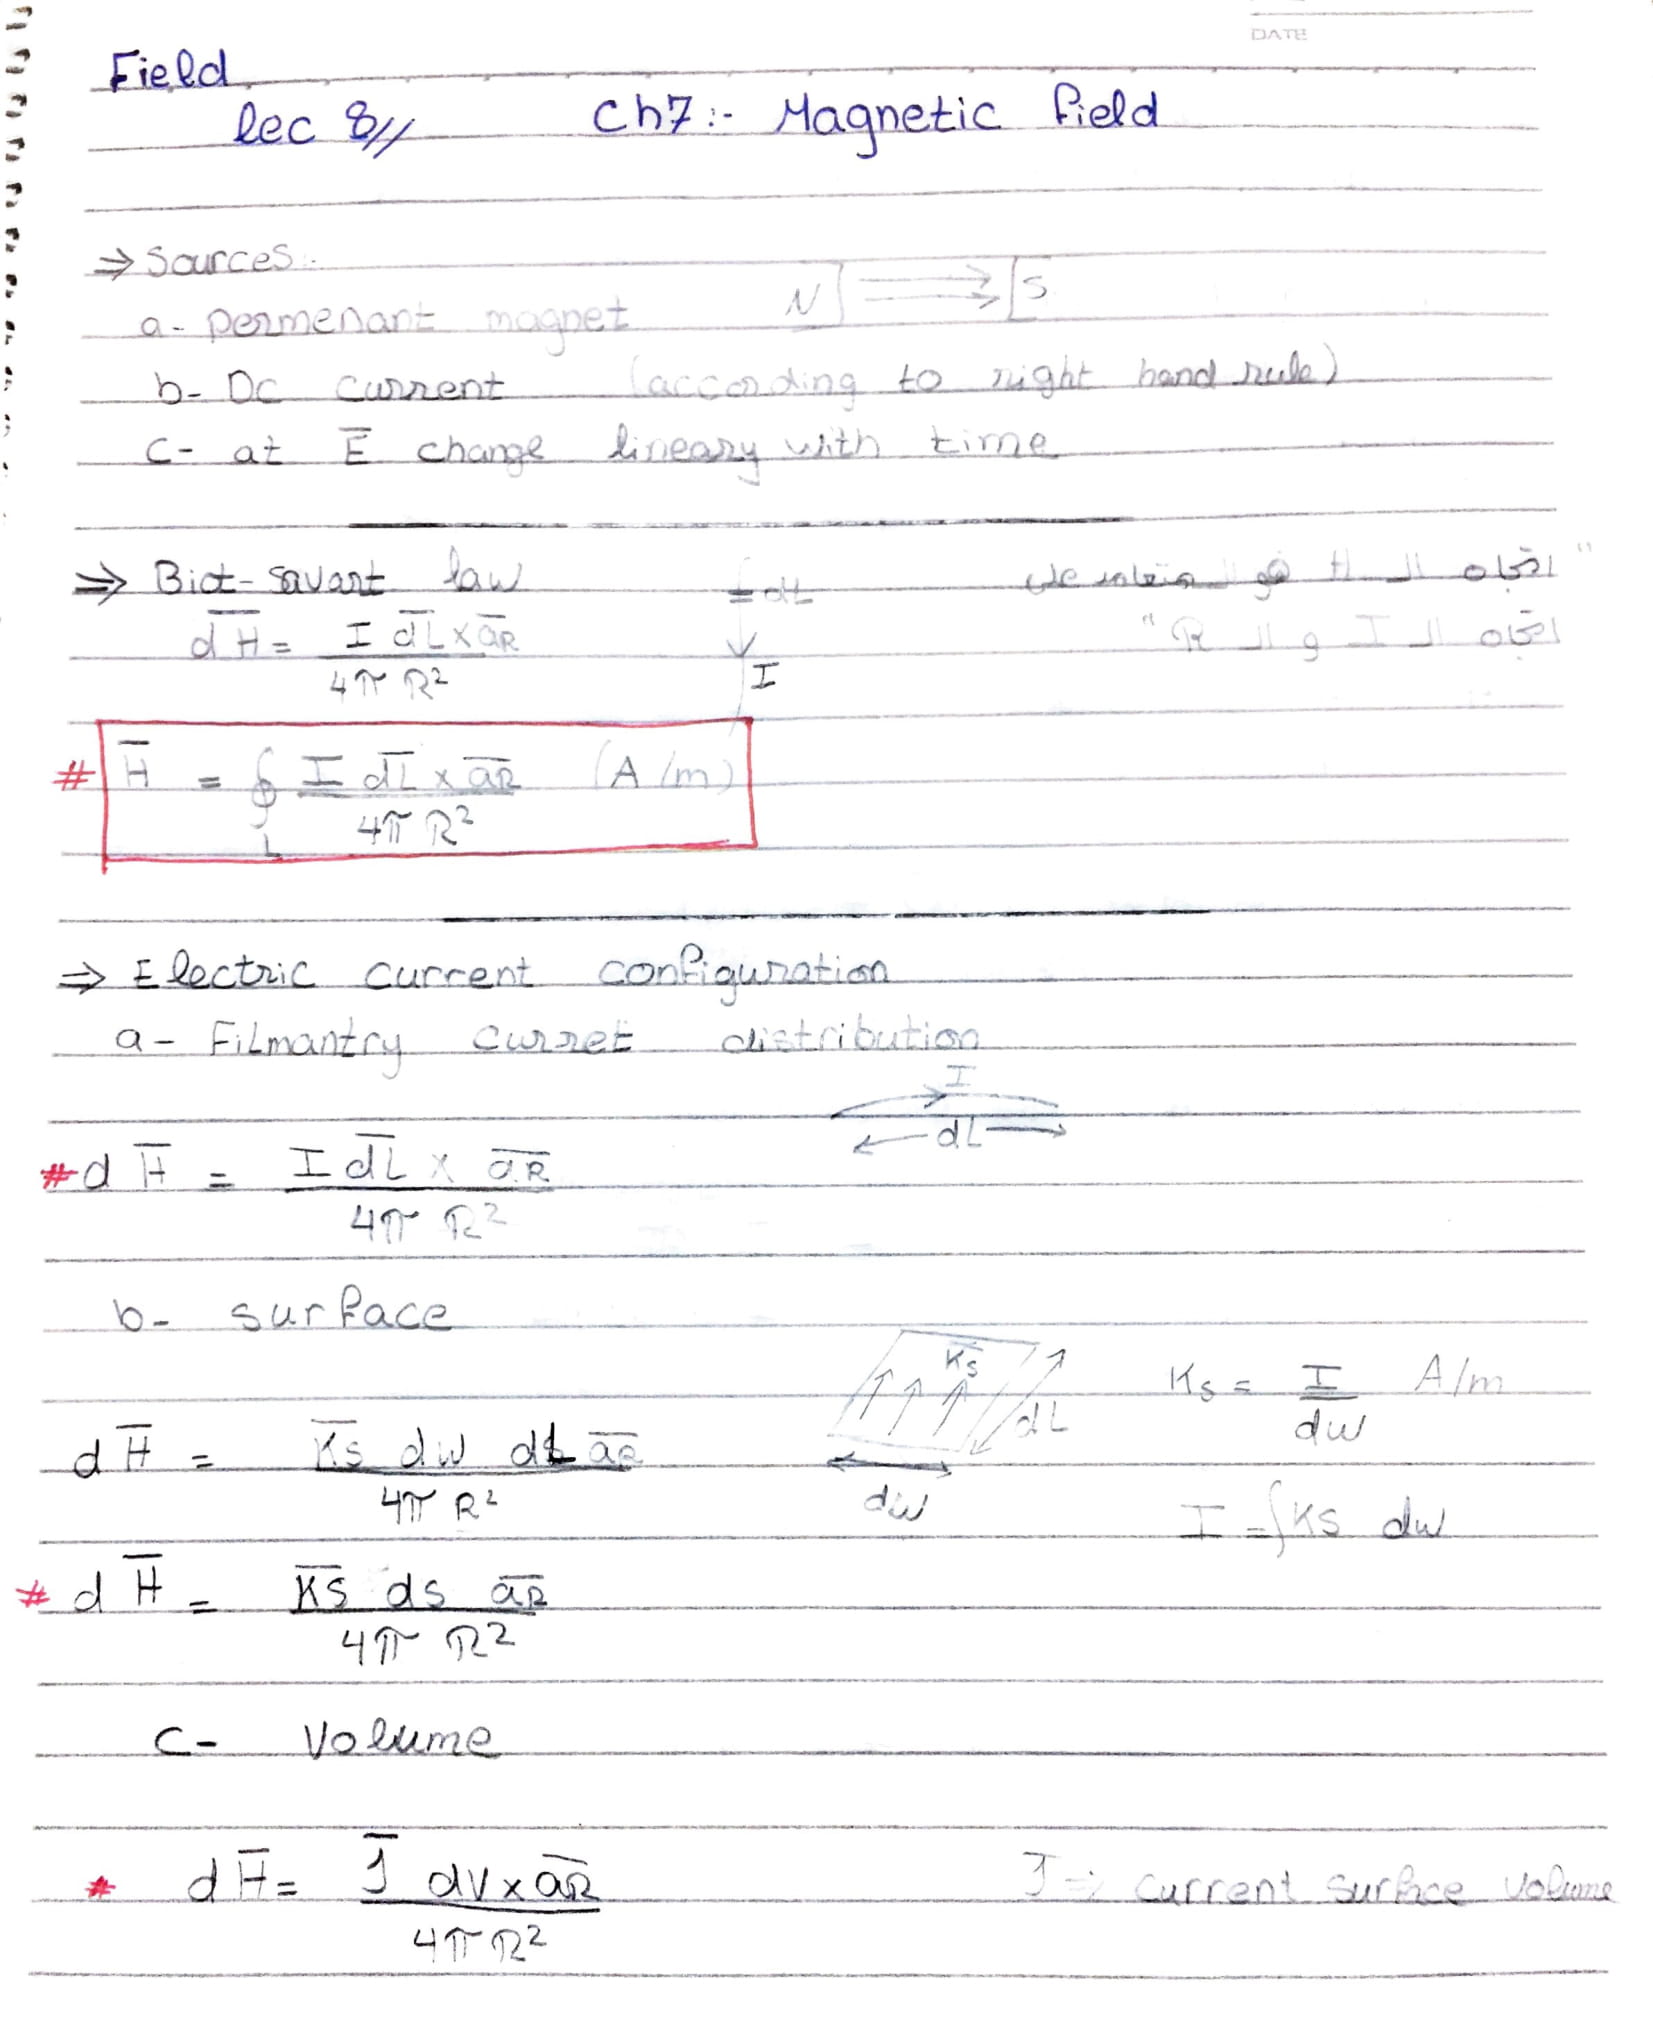 DATE
Field
lec 8// Ch7:- Magnetic field
⇒ Sources:-
a- permenant magnet N S
b- Dc current (according to right hand rule)
c- at E̅ change lineary with time
⇒ Biot-Savart law dL "اتجاه الـ H هو المتعامد على
dH̅ = I dL̅ × a̅R / 4π R² I اتجاه الـ I و الـ R"
# H̅ = ∮L I dL̅ × a̅R / 4π R² (A/m)
⇒ Electric current configuration
a- Filmantry curret distribution
I
dL
# d H̅ = I dL̅ × a̅R / 4π R²
b- surface
K̅s dL dw Ks = I / dw A/m
d H̅ = K̅s dw dL a̅R / 4π R²
I = ∫Ks dw
# d H̅ = K̅s ds a̅R / 4π R²
c- Volume
* d H̅ = J̅ dv × a̅R / 4π R² J ⇒ current surface volume